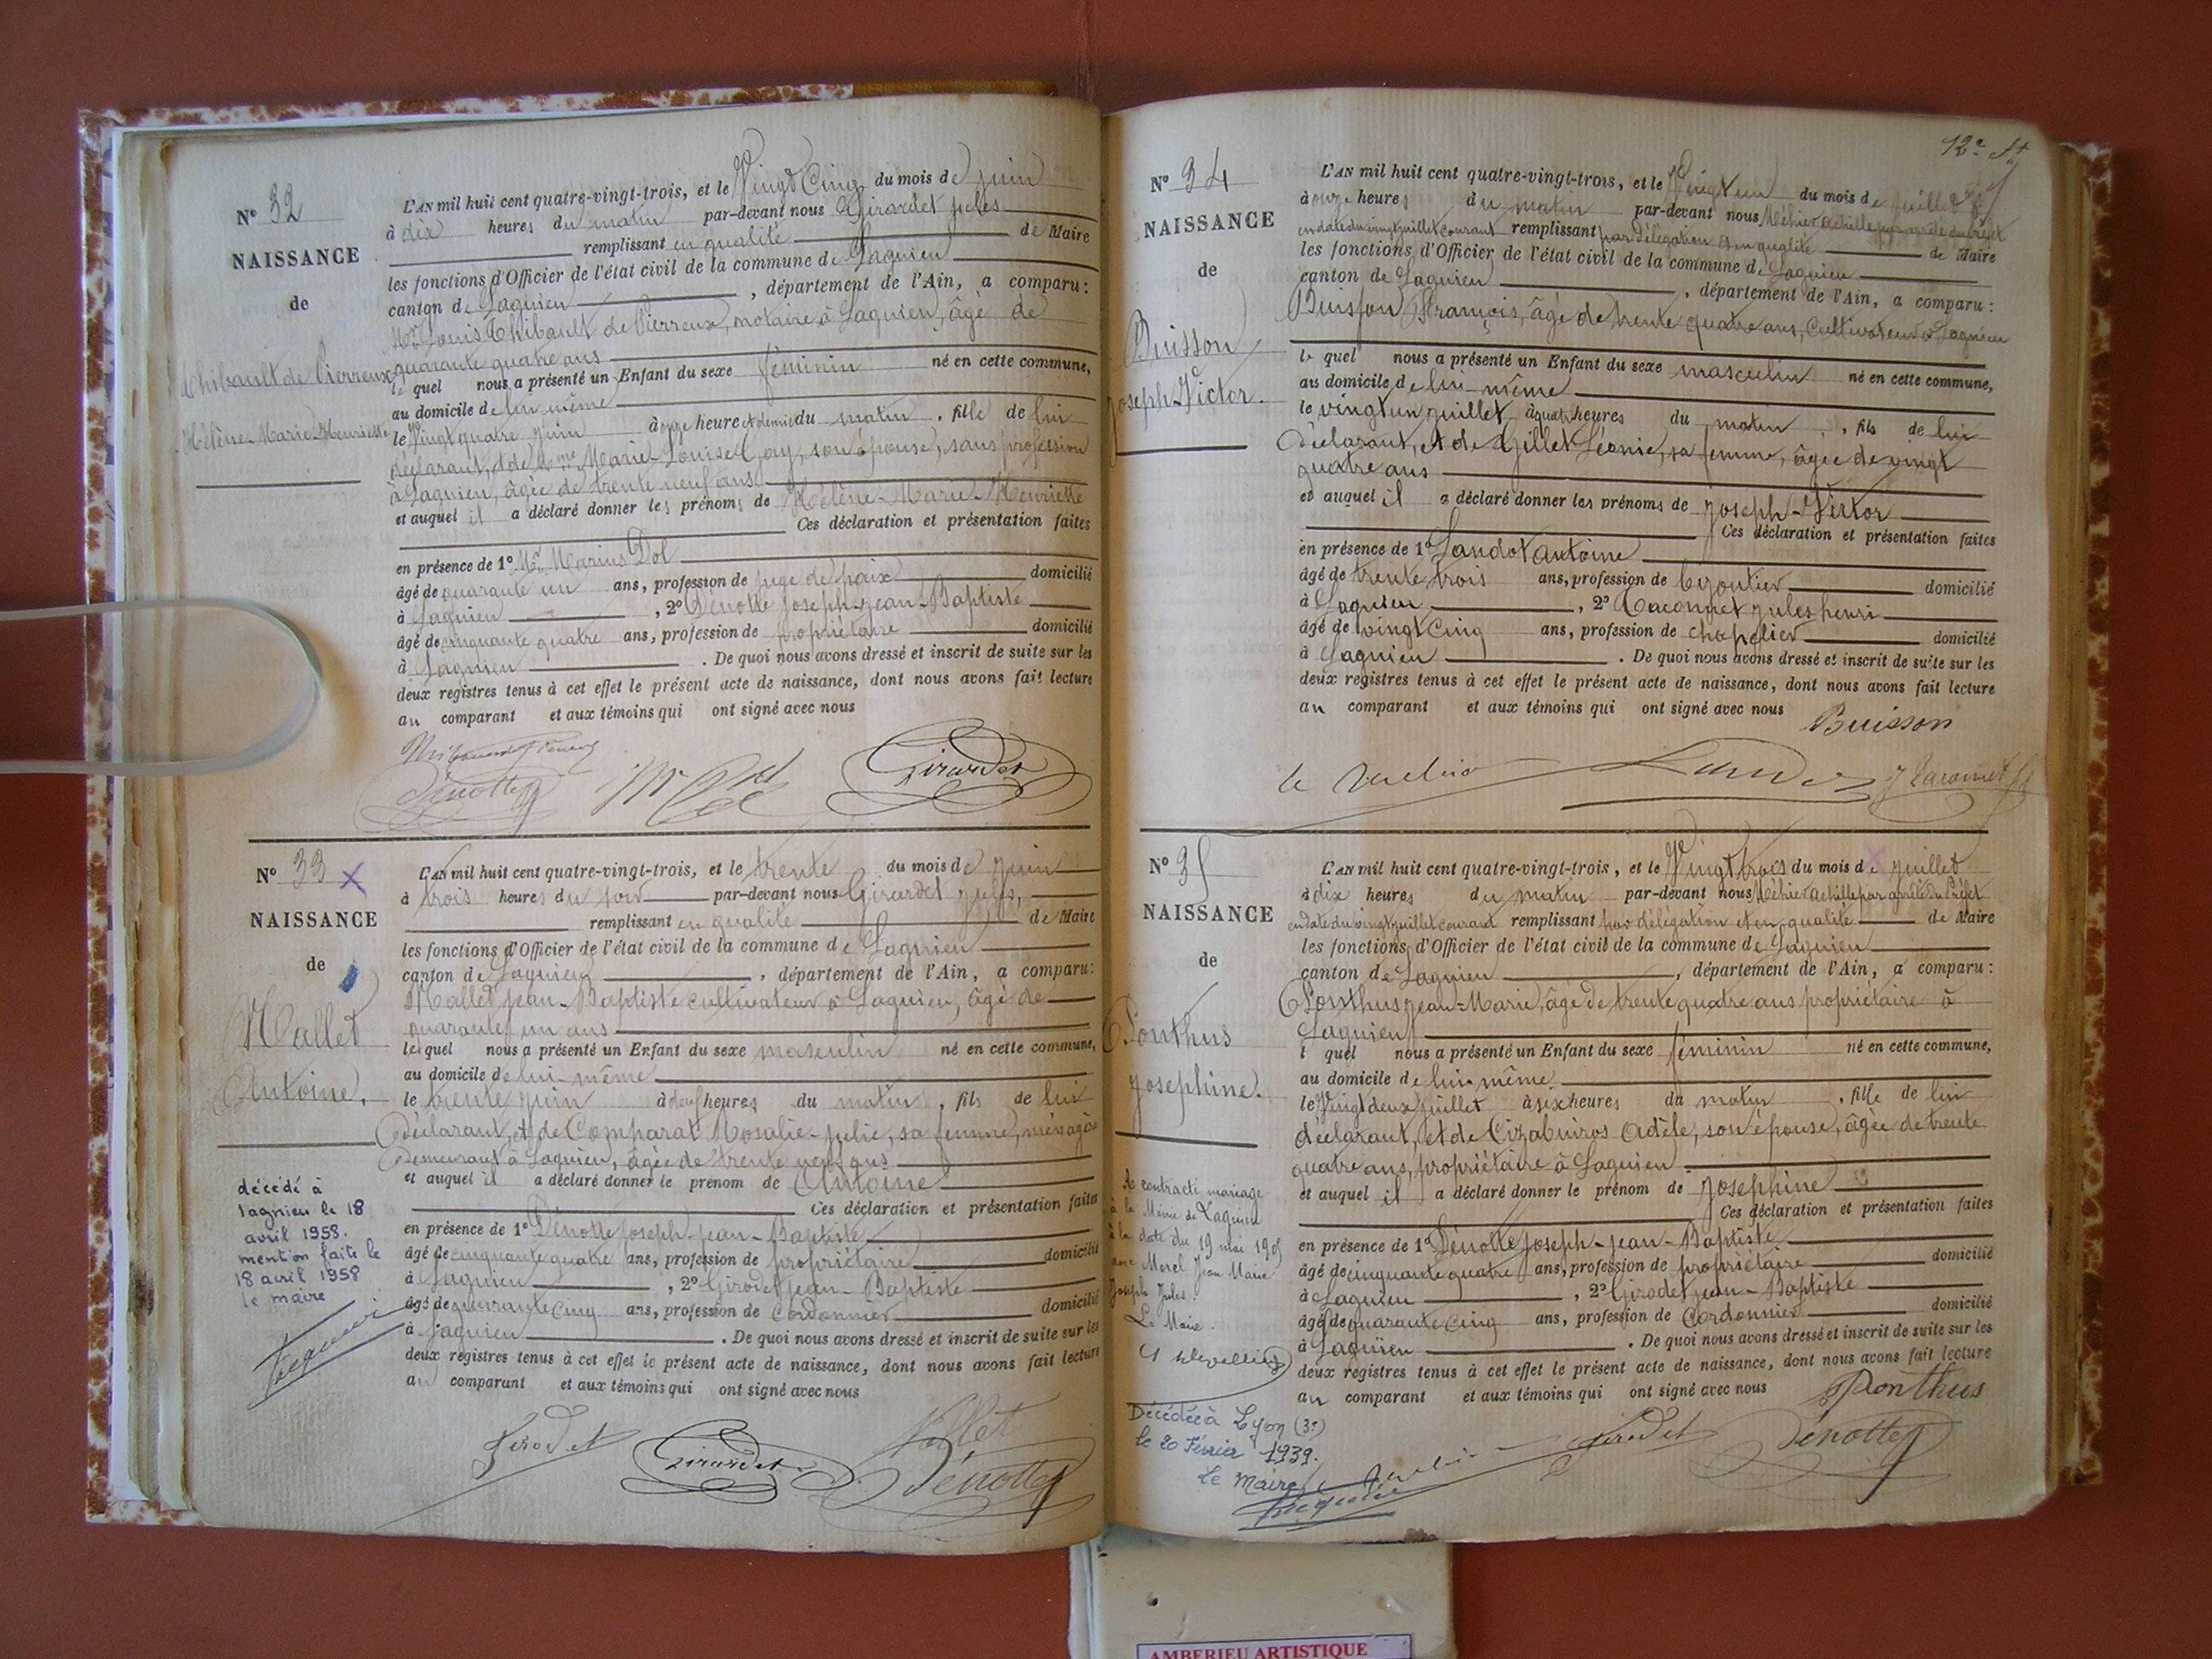 N° 32
NAISSANCE
de
Thibault de Pierreux
Hélène-Marie-Henriette
L'AN mil huit cent quatre-vingt-trois, et le Vingt Cinq du mois de juin
à dix heures du matin par-devant nous Girardet jules
remplissant en qualité de Maire
les fonctions d'Officier de l'état civil de la commune de Lagnieu
canton de Lagnieu, département de l'Ain, a comparu:
Mr Louis Thibault de Pierreux, notaire à Lagnieu, âgé de
quarante quatre ans
le quel nous a présenté un Enfant du sexe féminin né en cette commune,
au domicile de lui même
le Vingt quatre juin à onze heure et demie du matin, fille de lui
déclarant, et de Mme Marie-Louise, son épouse, sans profession
à Lagnieu, âgée de trente neuf ans
et auquel il a déclaré donner les prénoms de Hélène-Marie-Henriette
Ces déclaration et présentation faites
en présence de 1° Mr Marius Dol
âgé de quarante un ans, profession de juge de paix domicilié
à Lagnieu, 2° Dénotte Joseph-jean-Baptiste
âgé de cinquante quatre ans, profession de propriétaire domicilié
à Lagnieu. De quoi nous avons dressé et inscrit de suite sur les
deux registres tenus à cet effet le présent acte de naissance, dont nous avons fait lecture
au comparant et aux témoins qui ont signé avec nous
Dénotte Girardet
N° 33 x
NAISSANCE
de
Mallet
Antoine.
décédé à
Lagnieu le 18
avril 1958.
mention faite le
18 avril 1958
le maire
L'AN mil huit cent quatre-vingt-trois, et le trente du mois de juin
à trois heures du soir par-devant nous Girardet jules,
remplissant en qualité de Maire
les fonctions d'Officier de l'état civil de la commune de Lagnieu
canton de Lagnieu, département de l'Ain, a comparu:
Mallet jean-Baptiste cultivateur à Lagnieu, âgé de
quarante un ans
lequel nous a présenté un Enfant du sexe masculin né en cette commune,
au domicile de lui-même
le trente juin à heures du matin, fils de lui
déclarant, et de Comparat Rosalie-julie, sa femme, ménagère
demeurant à Lagnieu, âgée de trente neuf ans
et auquel il a déclaré donner le prénom de Antoine
Ces déclaration et présentation faites
en présence de 1° Dénotte Joseph-jean-Baptiste
âgé de cinquante quatre ans, profession de propriétaire domicilié
à Lagnieu, 2° Girodet jean-Baptiste
âgé de quarante cinq ans, profession de Cordonnier domicilié
à Lagnieu. De quoi nous avons dressé et inscrit de suite sur les
deux registres tenus à cet effet le présent acte de naissance, dont nous avons fait lecture
au comparant et aux témoins qui ont signé avec nous
Girodet Girardet Mallet
Dénotte
12e
N° 34
NAISSANCE
de
Buisson
Joseph-Victor.
L'AN mil huit cent quatre-vingt-trois, et le Vingt un du mois de juillet
à onze heures du matin par-devant nous Méhier achille par arrêté du Préfet
en date du vingt juillet courant remplissant par délégation et en qualité de Maire
les fonctions d'Officier de l'état civil de la commune de Lagnieu
canton de Lagnieu, département de l'Ain, a comparu:
Buisson François, âgé de trente quatre ans, Cultivateur à Lagnieu
le quel nous a présenté un Enfant du sexe masculin né en cette commune,
au domicile de lui-même
le vingt un juillet, à quatre heures du matin, fils de lui
déclarant, et de Gillet Léonie, sa femme, âgée de vingt
quatre ans
et auquel il a déclaré donner les prénoms de Joseph-Victor
Ces déclaration et présentation faites
en présence de 1° Landot antoine
âgé de trente trois ans, profession de bijoutier domicilié
à Lagnieu, 2° jules henri
âgé de vingt cinq ans, profession de chapelier domicilié
à Lagnieu. De quoi nous avons dressé et inscrit de suite sur les
deux registres tenus à cet effet le présent acte de naissance, dont nous avons fait lecture
au comparant et aux témoins qui ont signé avec nous
Buisson
N° 35
NAISSANCE
de
Ponthus
Josephine.
A contracté mariage
à la Mairie de Lagnieu
à la date du 19 mai 190
avec Morel Jean Marie
Joseph Jules.
Le Maire.
Décédée à Lyon (3e)
le 20 Février 1939.
Le Maire
L'AN mil huit cent quatre-vingt-trois, et le Vingt trois du mois de juillet
à dix heures du matin par-devant nous Méhier achille par arrêté du Préfet
en date du vingt juillet courant remplissant par délégation et en qualité de Maire
les fonctions d'Officier de l'état civil de la commune de Lagnieu
canton de Lagnieu, département de l'Ain, a comparu:
Ponthus jean-Marie, âgé de trente quatre ans propriétaire à
Lagnieu
l quel nous a présenté un Enfant du sexe féminin né en cette commune,
au domicile de lui-même
le Vingt deux juillet à six heures du matin, fille de lui
déclarant, et de Adèle, son épouse, âgée de trente
quatre ans, propriétaire à Lagnieu
et auquel il a déclaré donner le prénom de Josephine
Ces déclaration et présentation faites
en présence de 1° Dénotte Joseph-jean-Baptiste
âgé de cinquante quatre ans, profession de propriétaire domicilié
à Lagnieu, 2° Girodet jean-Baptiste
âgé de quarante cinq ans, profession de Cordonnier domicilié
à Lagnieu. De quoi nous avons dressé et inscrit de suite sur les
deux registres tenus à cet effet le présent acte de naissance, dont nous avons fait lecture
au comparant et aux témoins qui ont signé avec nous
Ponthus
Girodet Dénotte
AMBERIEU ARTISTIQUE